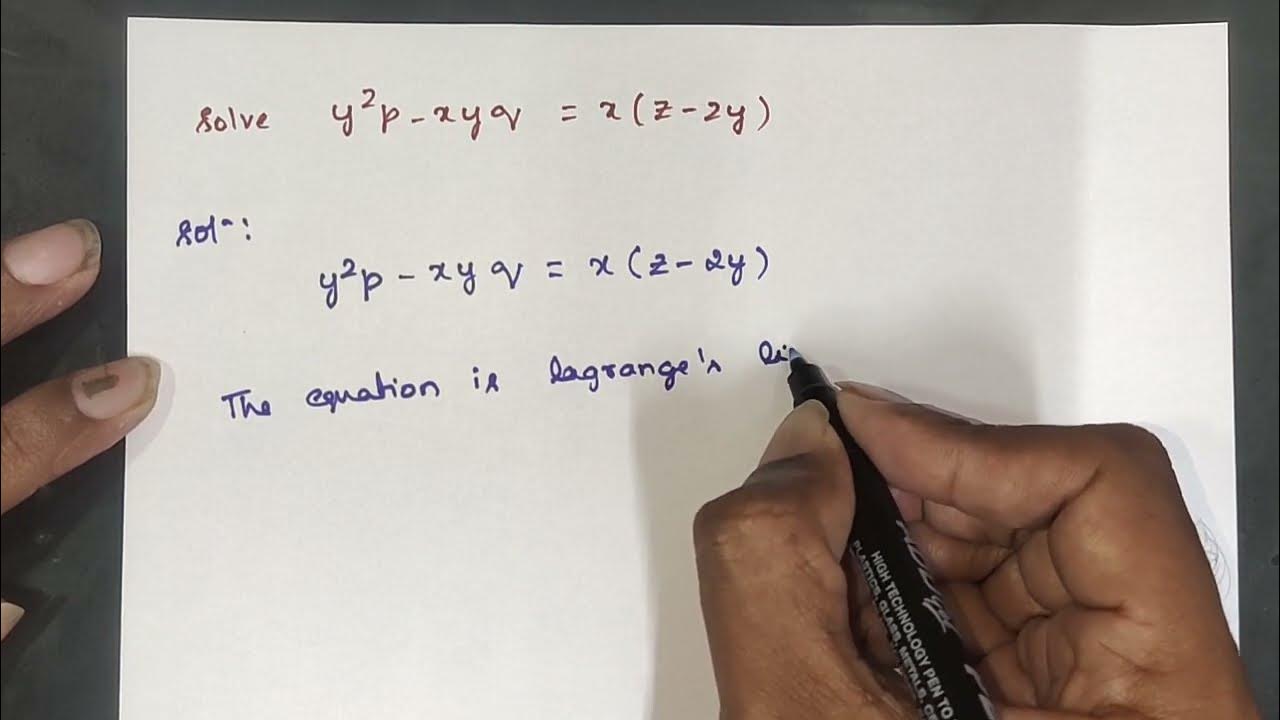 Solve y²p - xyq = x(z-2y)
Solⁿ:
y²p - xyq = x(z-2y)
The equation is lagrange's li
HIGH TECHNOLOGY PEN TO
PLASTICS, GLASS, METALS,